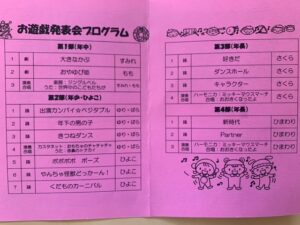 お遊戯発表会プログラム
第1部(年中)
1 劇 大きなかぶ すみれ
2 劇 おやゆび姫 もも
3 楽器：ジングルベル
うた：世界中のこどもたちが すみれ・もも
第2部(年少・ひよこ)
1 踊 出席カンパイ☆ベジタブル ゆり・ばら
2 踊 年下の男の子 ゆり・ばら
3 踊 きつねダンス ゆり・ばら
4 カスタネット おもちゃのチャチャチャ
ゆり・ばら
5 踊 ポポポポ ポーズ ひよこ
6 踊 やんちゃ怪獣どっかーん！ ひよこ
7 踊 くだものカーニバル ひよこ
第3部(年長)
1 踊 好きだ さくら
2 踊 ダンスホール さくら
3 踊 キャラクター さくら
4 ハーモニカ：ミッキーマウスマーチ
合唱：おおきくなったよ さくら
第4部(年長)
1 踊 新時代 ひまわり
2 踊 Partner ひまわり
3 ハーモニカ：ミッキーマウスマーチ
合唱：おおきくなったよ ひまわり